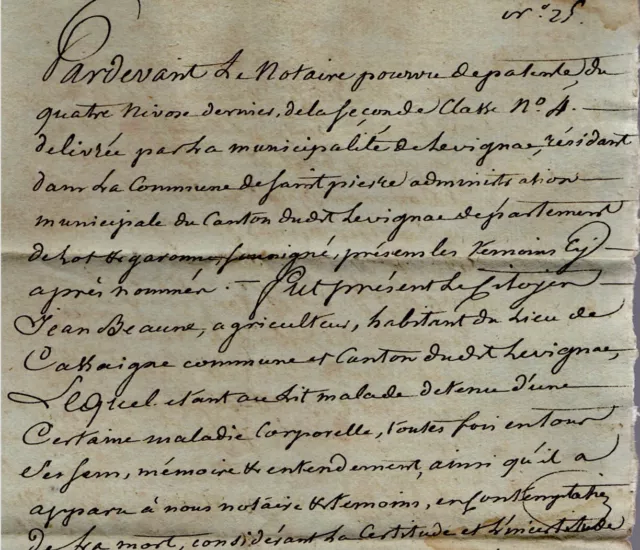 N.° 25.
Pardevant Le Notaire pourvu de patente du
quatre Nivose dernier, de la seconde Classe N.° 4.
delivrée par La municipalité de Levignac, résidant
dans La Commune de saint pierre administration
municipale du Canton dudit Levignac departement
de Lot & garonne, sousigné, présens les temoins Cy
après nommés. — Fut présent Le Citoyen
Jean Beaune, agriculteur, habitant du Lieu de
Cassaigne commune et Canton dudit Levignac,
Lequel etant au Lit malade detenu d'une
Certaine maladie Corporelle, toutes fois en tour
Ses sens, mémoire & entendement, ainsi qu'il a
apparu à nous notaire & temoins, en Contemplation
de La mort, considérant La Certitude et L'incertitude